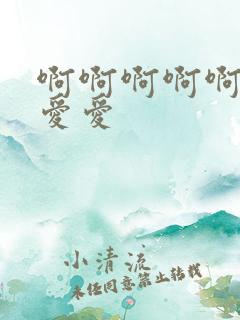 啊啊啊啊啊
爱爱
小清流
未经同意禁止转载